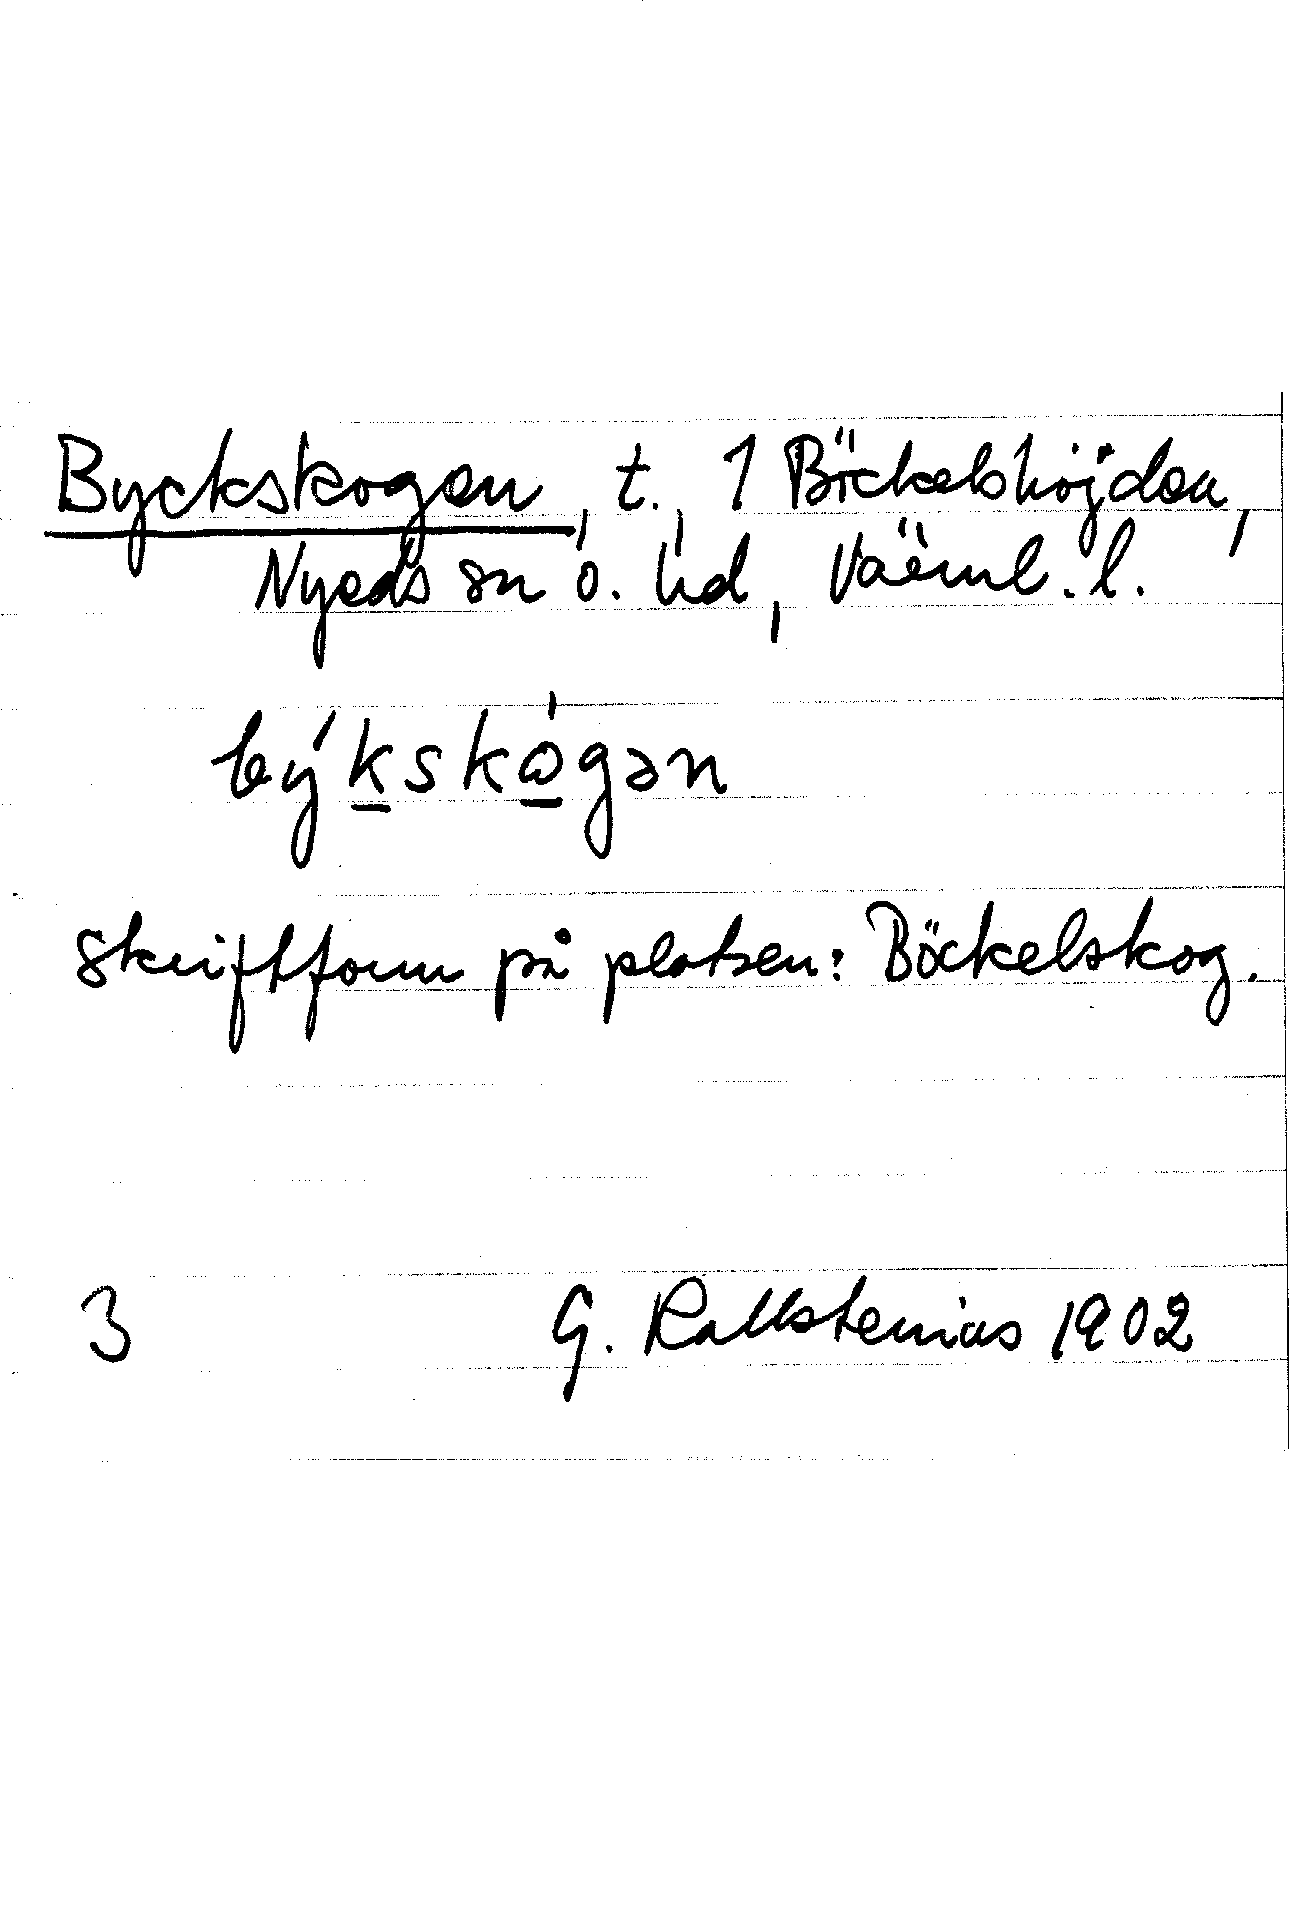 Byckskogen, t., 1 Böckelshöjden,
Nyeds sn o. hd, Värml. l.
býkskǫ́gən
Skriftform på platsen: Böckelskog.
3 G. Kallstenius 1902